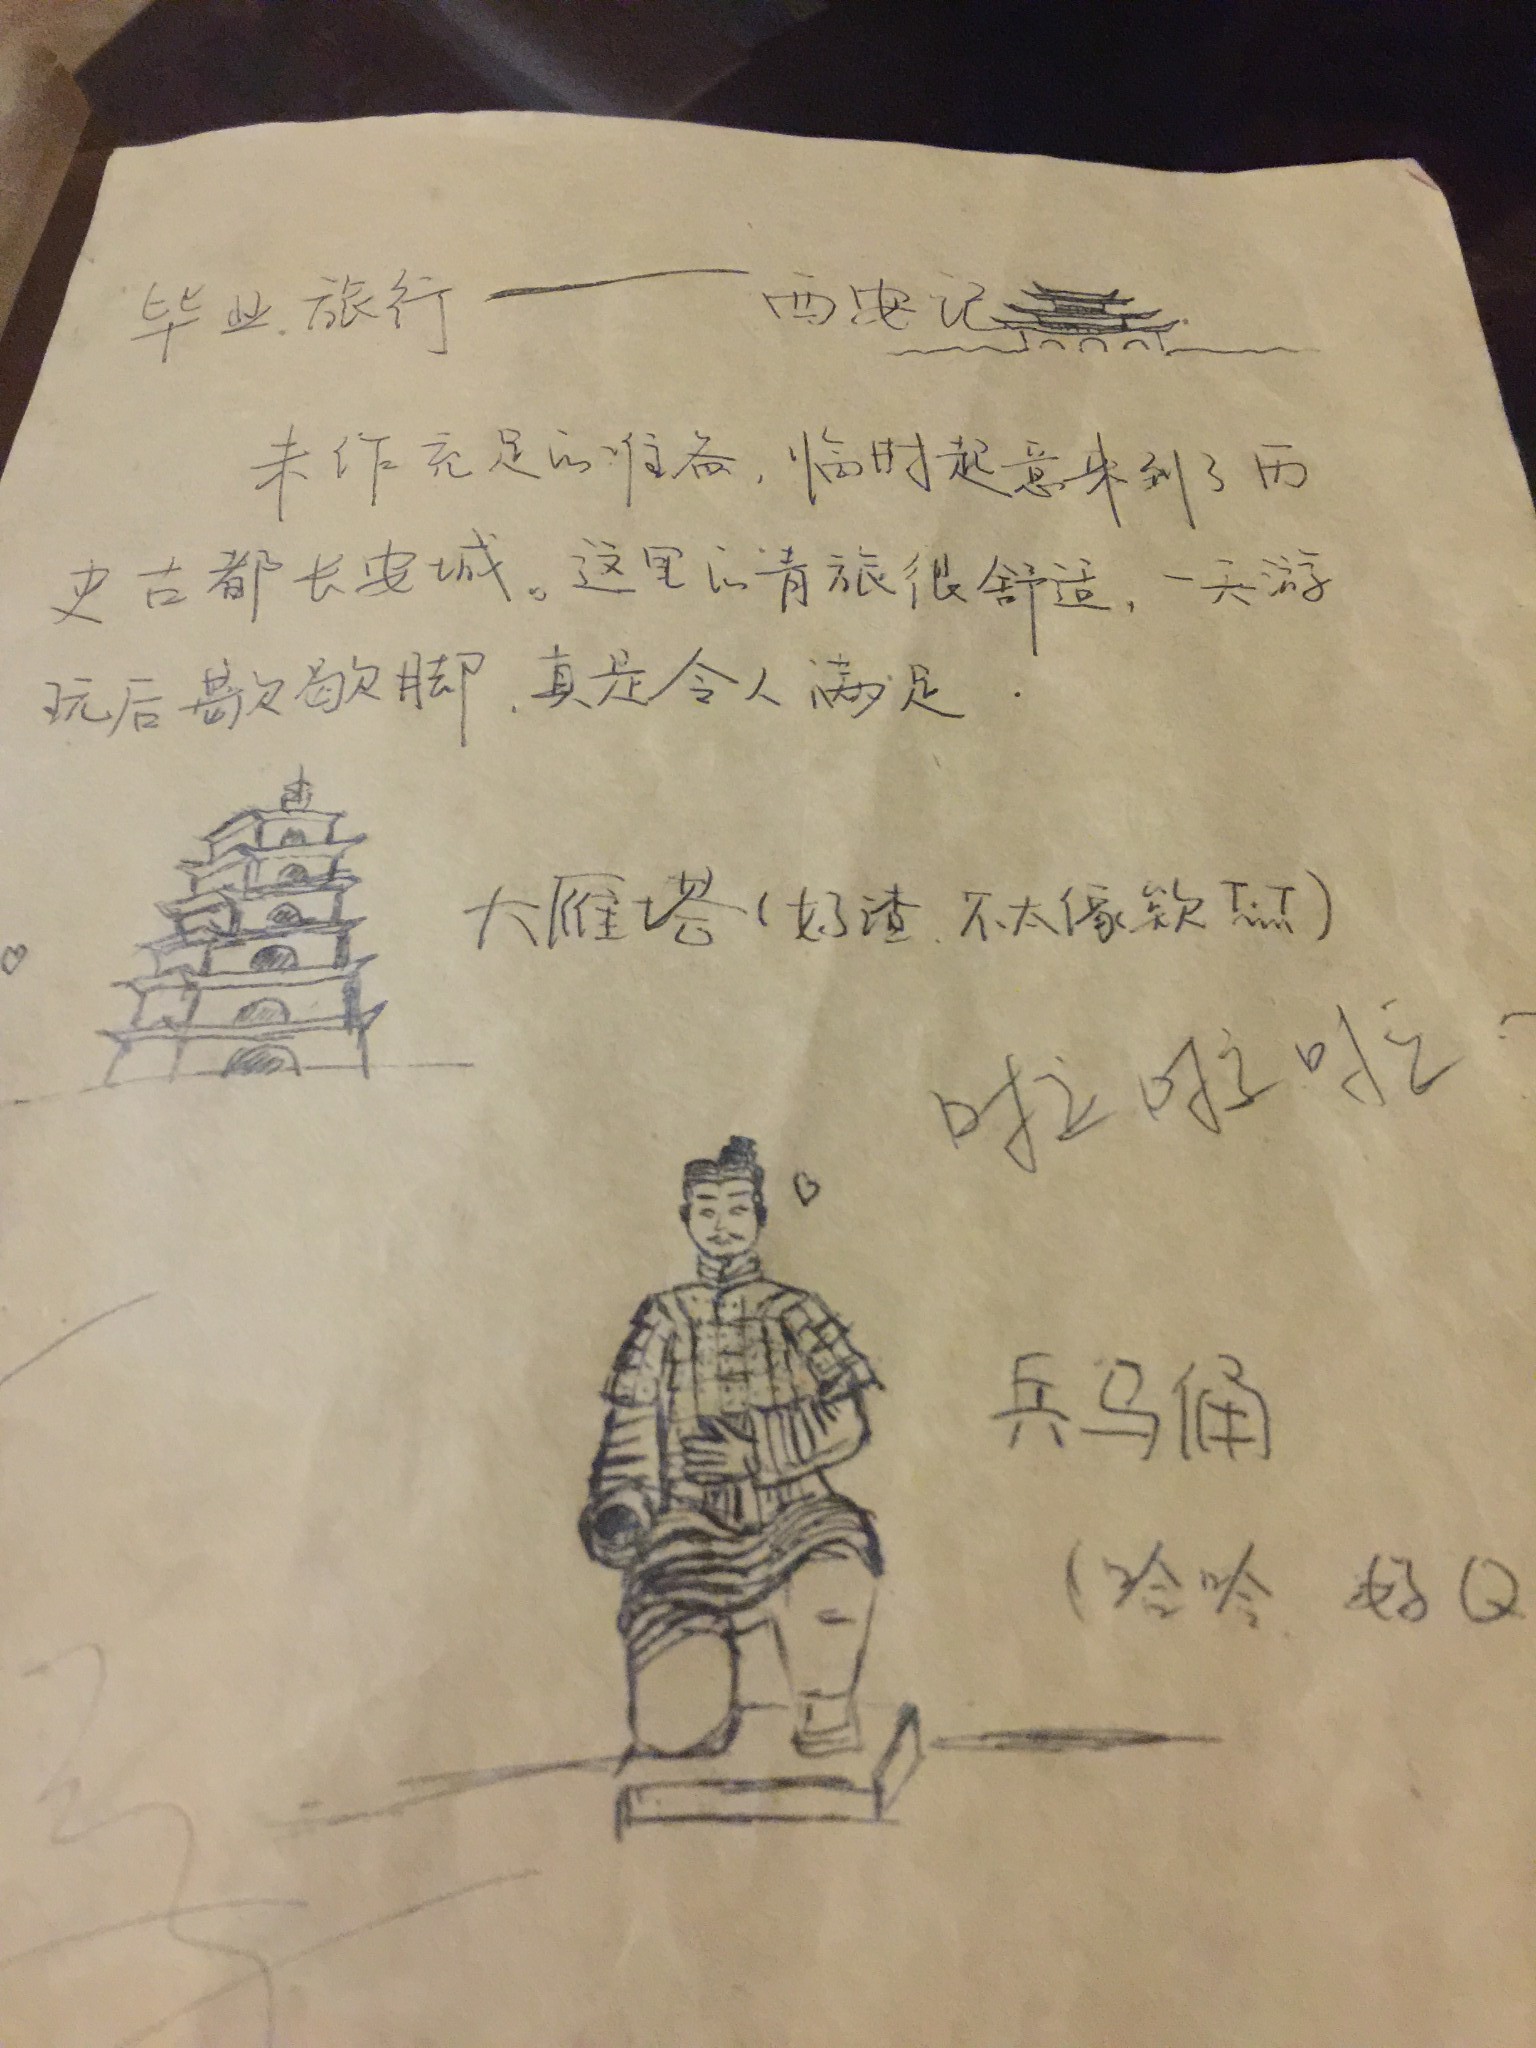 毕业旅行——西安记
未作充足的准备，临时起意来到了西
史古都长安城。这里的青旅很舒适，一天游
玩后歇歇脚，真是令人满足.
大雁塔(好渣,不太像欸T...T)
啦啦啦~
兵马俑
(哈哈 好Q